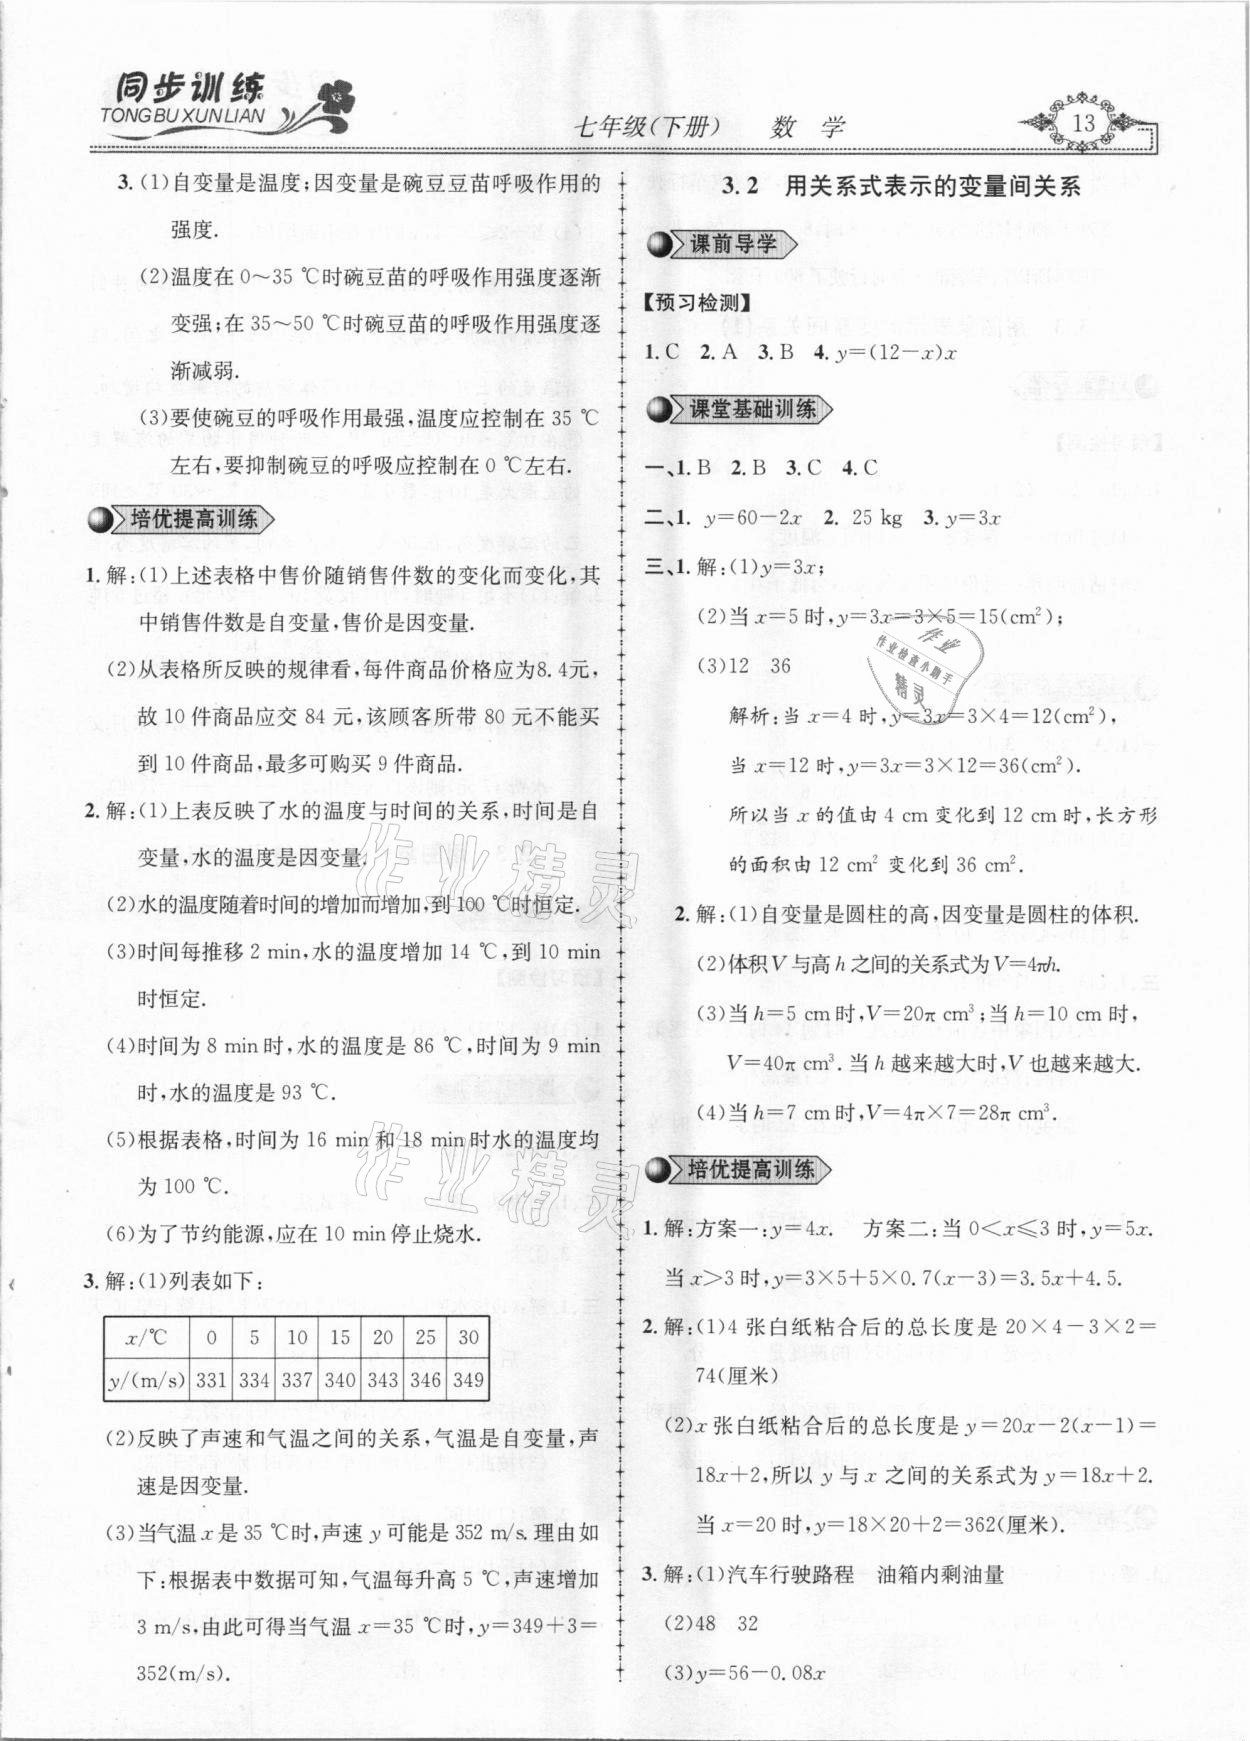 同步训练
TONGBU XUNLIAN
七年级(下册) 数 学
13
3.(1)自变量是温度;因变量是碗豆豆苗呼吸作用的
强度.
(2)温度在 0～35 ℃时碗豆苗的呼吸作用强度逐渐
变强;在 35～50 ℃时碗豆苗的呼吸作用强度逐
渐减弱.
(3)要使碗豆的呼吸作用最强,温度应控制在 35 ℃
左右,要抑制碗豆的呼吸应控制在 0 ℃左右.
培优提高训练
1.解:(1)上述表格中售价随销售件数的变化而变化,其
中销售件数是自变量,售价是因变量.
(2)从表格所反映的规律看,每件商品价格应为8.4元,
故 10 件商品应交 84 元,该顾客所带 80 元不能买
到 10 件商品,最多可购买 9 件商品.
2.解:(1)上表反映了水的温度与时间的关系,时间是自
变量,水的温度是因变量.
(2)水的温度随着时间的增加而增加,到 100 ℃时恒定.
(3)时间每推移 2 min,水的温度增加 14 ℃,到 10 min
时恒定.
(4)时间为 8 min时,水的温度是 86 ℃,时间为 9 min
时,水的温度是 93 ℃.
(5)根据表格,时间为 16 min 和 18 min时水的温度均
为 100 ℃.
(6)为了节约能源,应在 10 min 停止烧水.
3.解:(1)列表如下:
x/℃ 0 5 10 15 20 25 30
y/(m/s) 331 334 337 340 343 346 349
(2)反映了声速和气温之间的关系,气温是自变量,声
速是因变量.
(3)当气温 x 是 35 ℃时,声速 y 可能是 352 m/s.理由如
下:根据表中数据可知,气温每升高 5 ℃,声速增加
3 m/s,由此可得当气温 x=35 ℃时,y=349+3=
352(m/s).
3.2 用关系式表示的变量间关系
课前导学
【预习检测】
1.C 2.A 3.B 4.y=(12-x)x
课堂基础训练
一、1.B 2.B 3.C 4.C
二、1. y=60-2x 2. 25 kg 3. y=3x
三、1.解:(1)y=3x;
(2)当 x=5 时,y=3x=3×5=15(cm²);
(3)12 36
解析:当 x=4 时,y=3x=3×4=12(cm²),
当 x=12 时,y=3x=3×12=36(cm²).
所以当 x 的值由 4 cm变化到 12 cm 时,长方形
的面积由 12 cm² 变化到 36 cm².
2.解:(1)自变量是圆柱的高,因变量是圆柱的体积.
(2)体积 V 与高 h 之间的关系式为 V=4πh.
(3)当 h=5 cm 时,V=20π cm³;当 h=10 cm 时,
V=40π cm³.当 h 越来越大时,V 也越来越大.
(4)当 h=7 cm 时,V=4π×7=28π cm³.
培优提高训练
1.解:方案一:y=4x. 方案二:当 0<x≤3 时,y=5x.
当 x>3 时,y=3×5+5×0.7(x-3)=3.5x+4.5.
2.解:(1)4 张白纸粘合后的总长度是 20×4-3×2=
74(厘米)
(2)x 张白纸粘合后的总长度是 y=20x-2(x-1)=
18x+2,所以 y 与 x 之间的关系式为 y=18x+2.
当 x=20 时,y=18×20+2=362(厘米).
3.解:(1)汽车行驶路程 油箱内剩油量
(2)48 32
(3)y=56-0.08x
作业
作业检查小助手
精灵
作业精灵
作业精灵